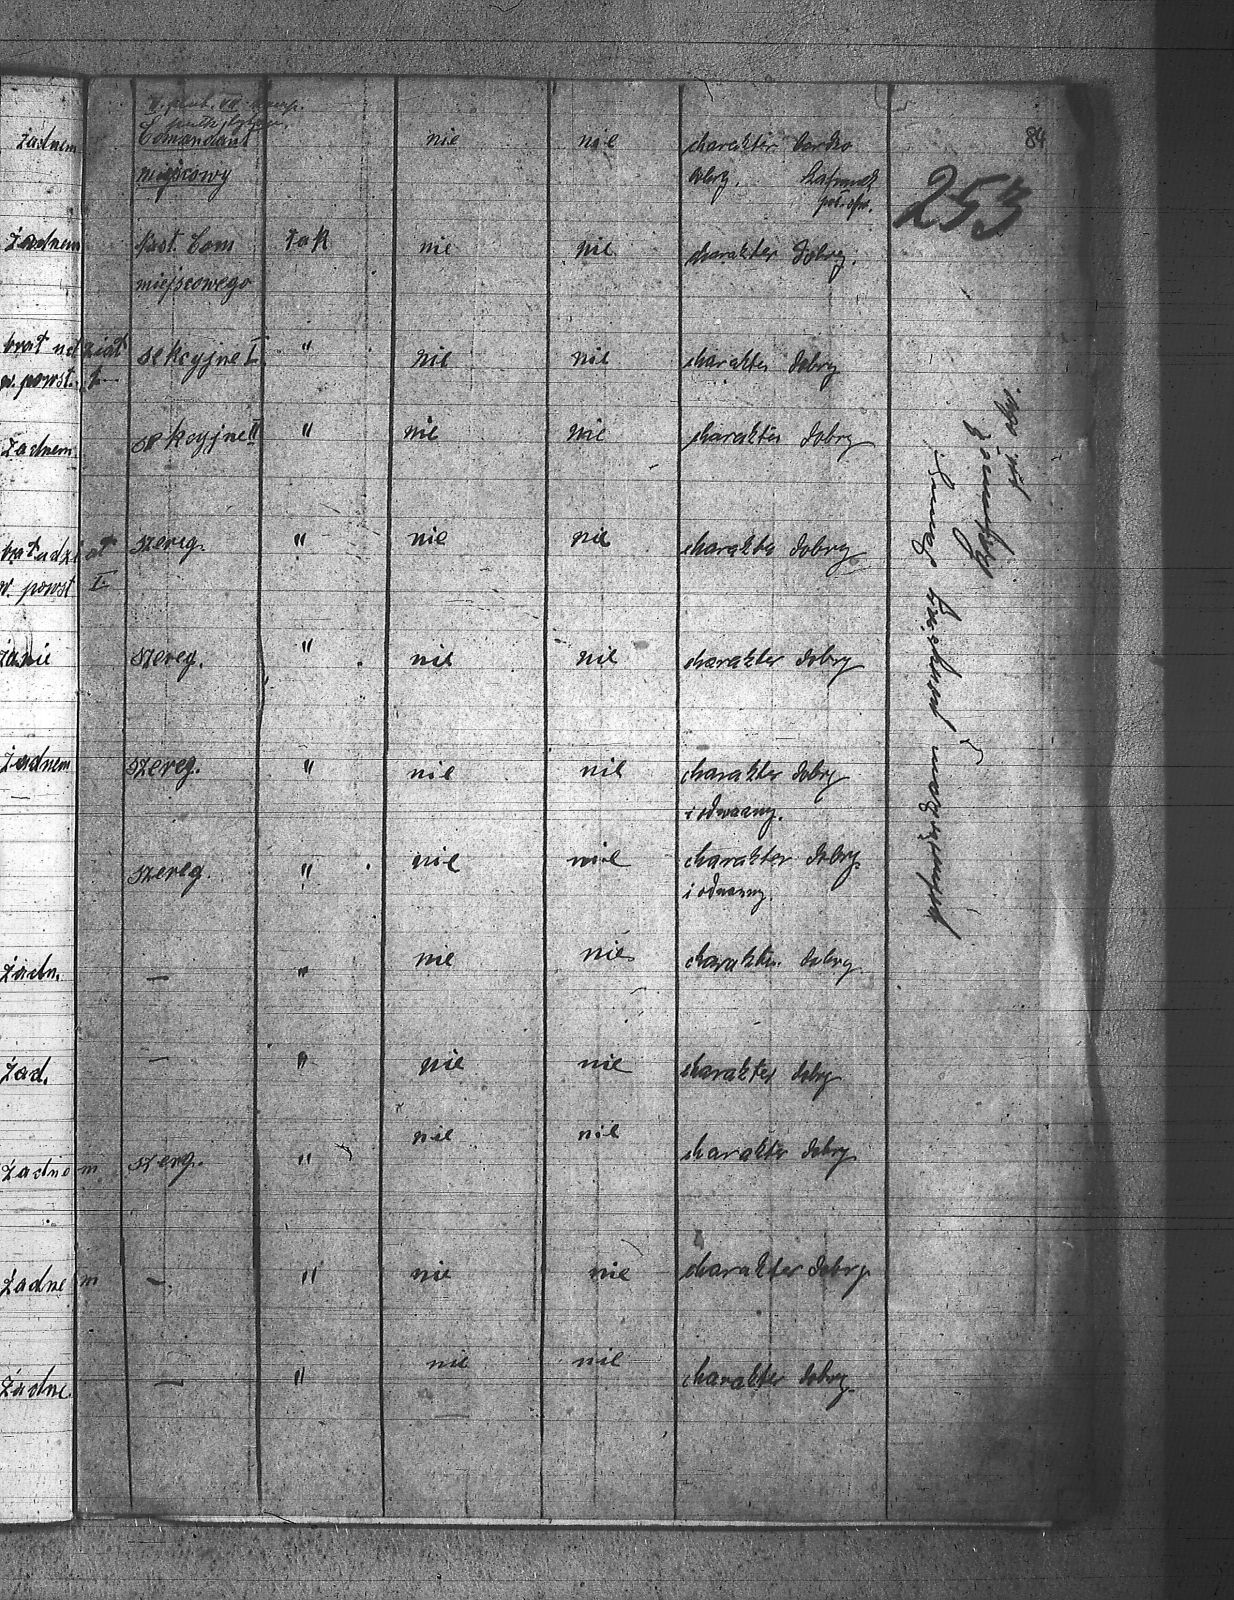 84
253
żadnem Comandant nie nie charakter bardzo
miejscowy dobry.
żadnem Nast. Com tak nie nie charakter dobry.
miejscowego
brat udział sekcyjne I " nie nie charakter dobry
w. powst. I
żadnem sekcyjne II " nie nie charakter dobry
brat udział szereg. " nie nie charakter dobry
w. powst I
szereg. " nie nie charakter dobry
żadnem szereg. " nie nie charakter dobry
i odważny.
szereg. " nie nie charakter dobry
i odważny.
żadn. — " nie nie charakter dobry
żad. — " nie nie charakter dobry
żadnem szerg. " nie nie charakter dobry
żadnem — " nie nie charakter dobry
żadne. — " nie nie charakter dobry.